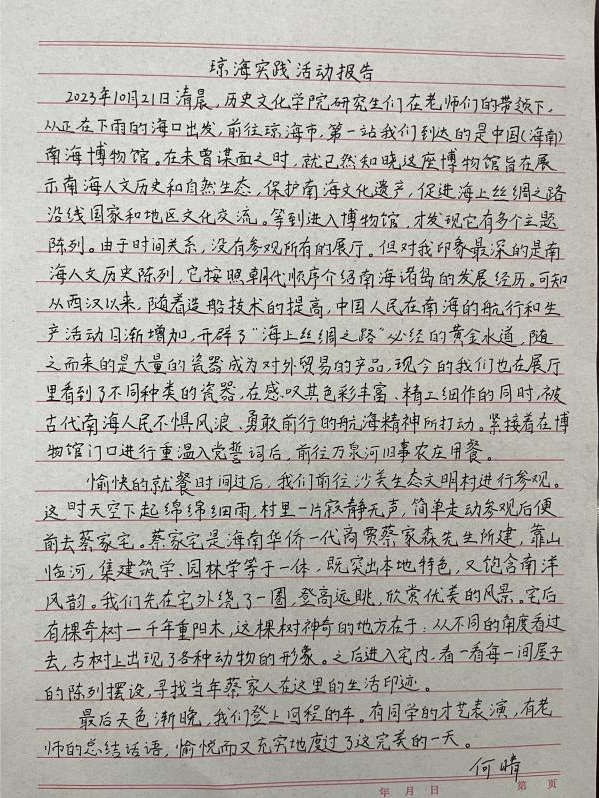 琼海实践活动报告
2023年10月21日清晨，历史文化学院研究生们在老师们的带领下，
从正在下雨的海口出发，前往琼海市，第一站我们到达的是中国(海南)
南海博物馆。在未曾谋面之时，就已然知晓这座博物馆旨在展
示南海人文历史和自然生态，保护南海文化遗产，促进海上丝绸之路
沿线国家和地区文化交流。等到进入博物馆，才发现它有多个主题
陈列。由于时间关系，没有参观所有的展厅。但对我印象最深的是南
海人文历史陈列，它按照朝代顺序介绍南海诸岛的发展经历。可知
从西汉以来，随着造船技术的提高，中国人民在南海的航行和生
产活动日渐增加，开辟了“海上丝绸之路”必经的黄金水道，随
之而来的是大量的瓷器成为对外贸易的产品，现今的我们也在展厅
里看到了不同种类的瓷器，在感叹其色彩丰富、精工细作的同时，被
古代南海人民不惧风浪、勇敢前行的航海精神所打动。紧接着在博
物馆门口进行重温入党誓词后，前往万泉河旧事农庄用餐。
愉快的就餐时间过后，我们前往沙美生态文明村进行参观。
这时天空下起绵绵细雨，村里一片寂静无声，简单走动参观后便
前去蔡家宅。蔡家宅是海南华侨一代商贾蔡家森先生所建，靠山
临河，集建筑学、园林学等于一体，既突出本地特色，又饱含南洋
风韵。我们先在宅外绕了一圈，登高远眺，欣赏优美的风景。宅后
有棵奇树一千年重阳木，这棵树神奇的地方在于：从不同的角度看过
去，古树上出现了各种动物的形象。之后进入宅内，看一看每一间屋子
的陈列摆设，寻找当年蔡家人在这里的生活印迹。
最后天色渐晚，我们登上回程的车。有同学的才艺表演，有老
师的总结话语，愉悦而又充实地度过了这完美的一天。
何晴
年 月 日 第 页